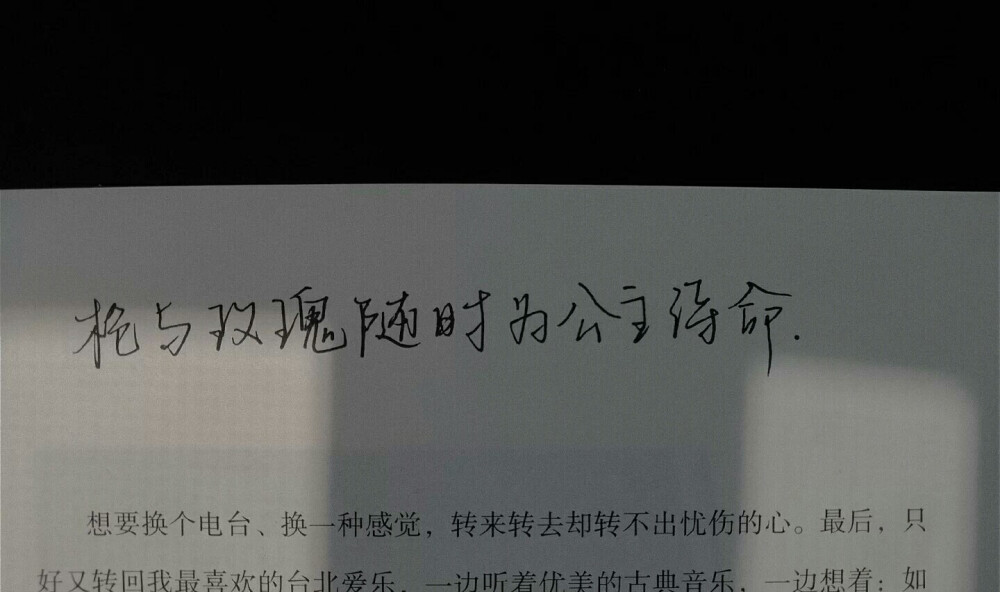 枪与玫瑰随时为公主待命.
想要换个电台、换一种感觉，转来转去却转不出忧伤的心。最后，只
好又转回我最喜欢的台北爱乐，一边听着优美的古典音乐，一边想着：如